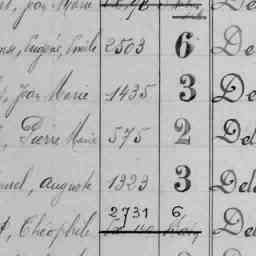 Jean Marie
Eugène, Emile 2503 6 De
Jean Marie 1435 3 De
Pierre Marie 575 2 Del
Auguste 1323 3 Del
Théophile 2731 6 De